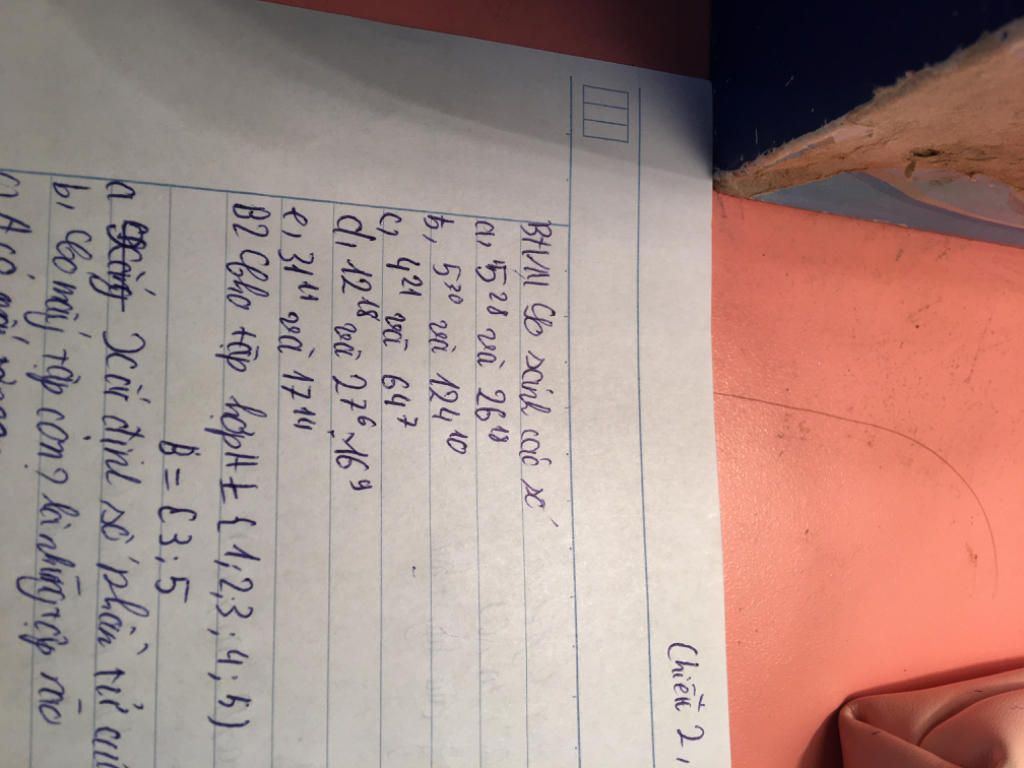 Chiều 2,
BH1 So sánh các số
a, 5²⁸ và 26¹⁴
b, 5³⁰ và 124¹⁰
c, 4²¹ và 64⁷
d, 12¹⁸ và 27⁶.16⁹
e, 31¹¹ và 17¹⁴
B2 Cho tập hợp A = { 1; 2; 3; 4; 5 )
B = { 3; 5
a Xác định số phần tử của
b, có mấy tập con? là những tập nào
A có